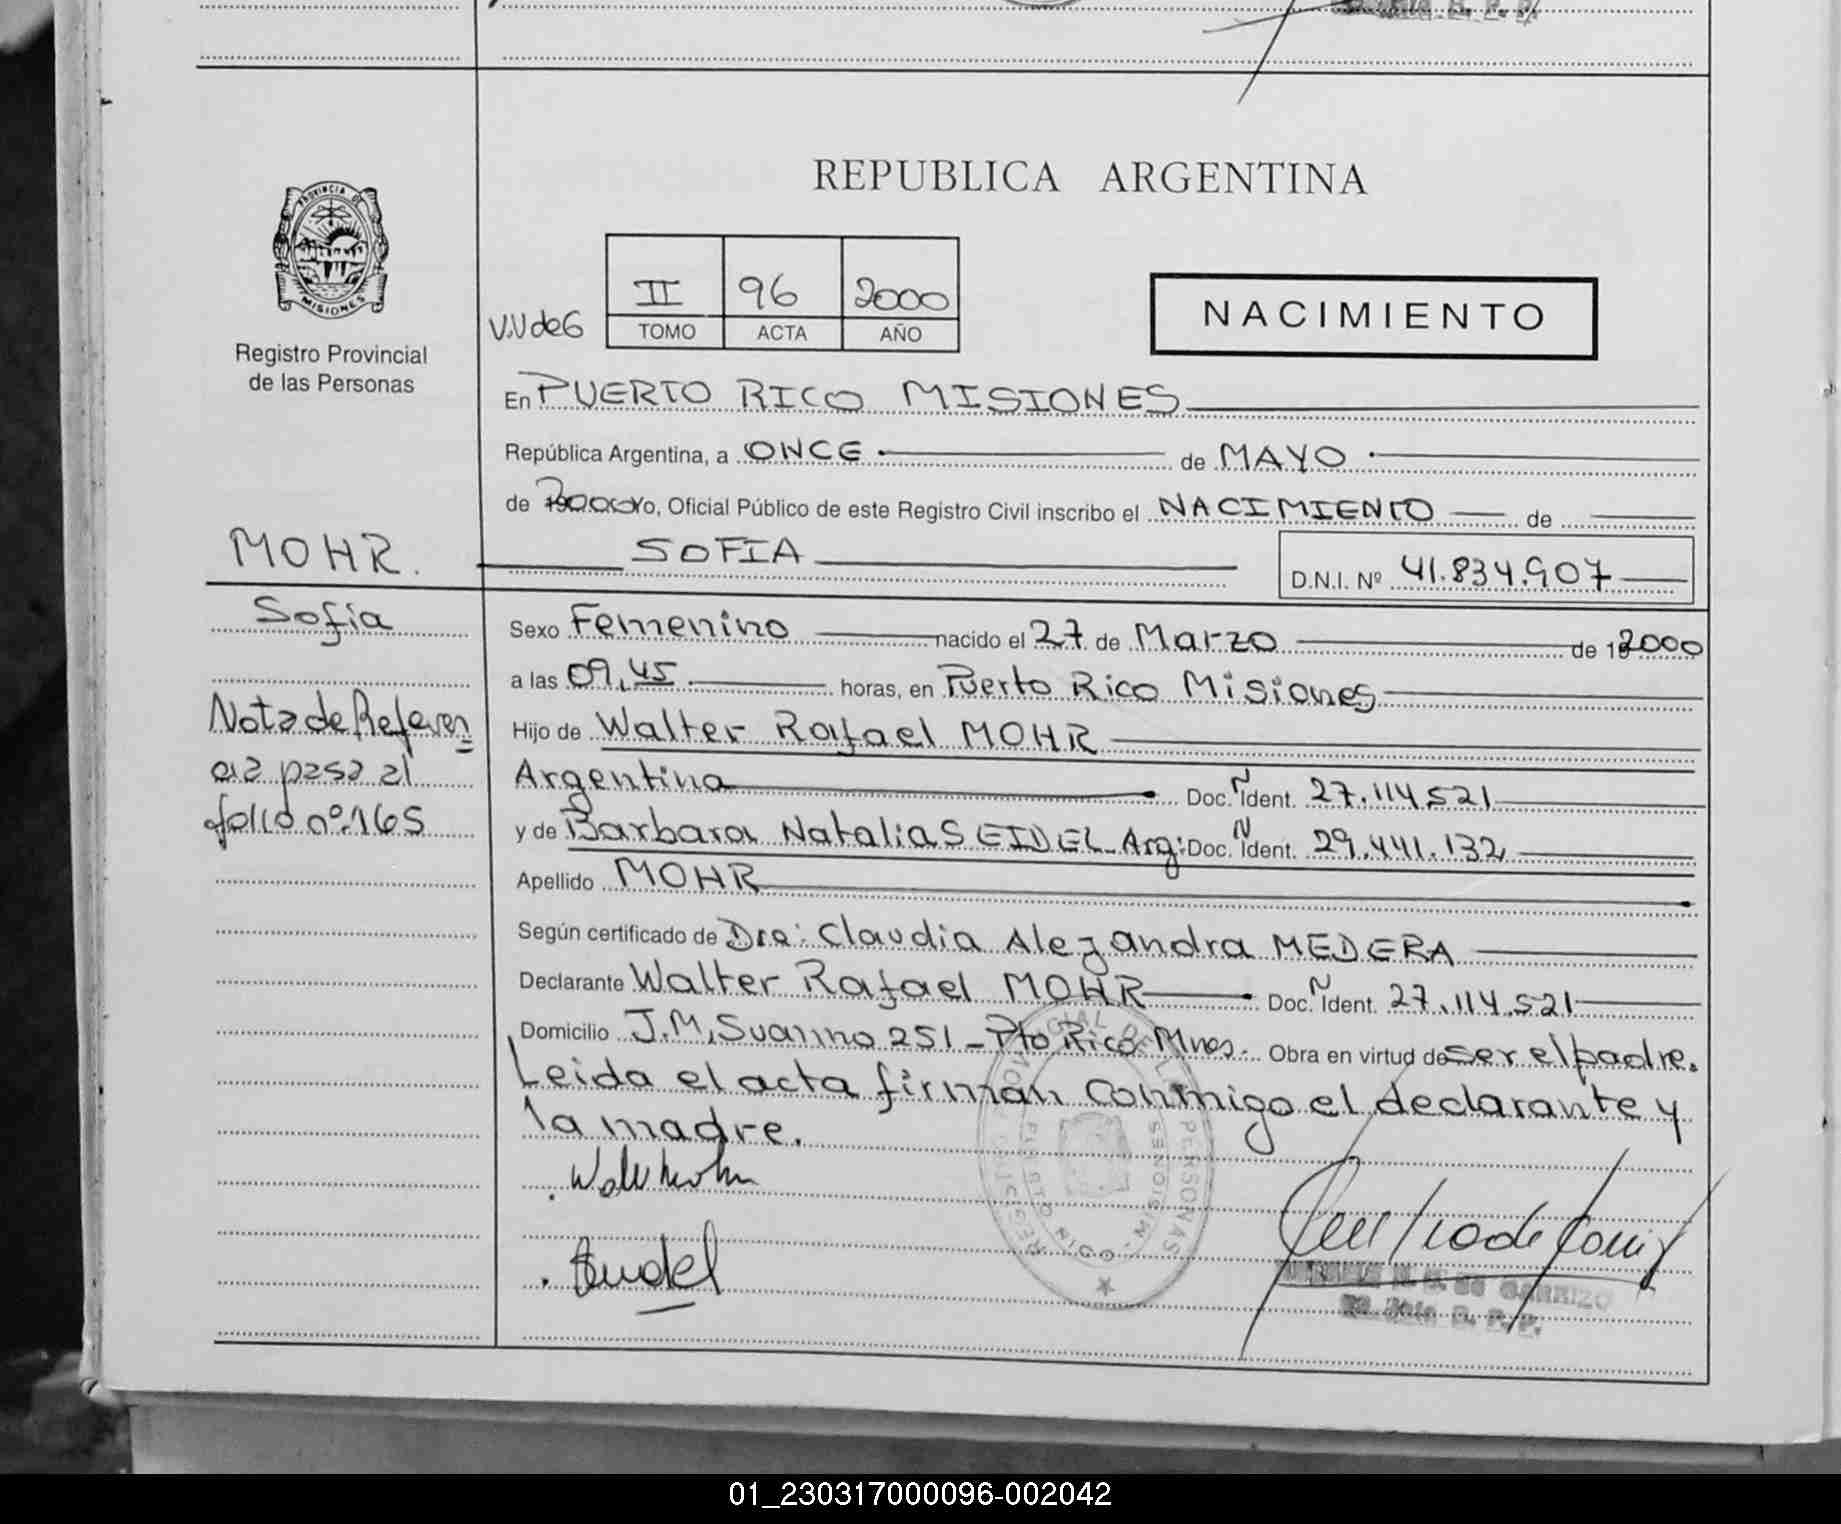 REPUBLICA ARGENTINA
PROVINCIA DE
MISIONES
Registro Provincial
de las Personas
V.V de G
II 96 2000
TOMO ACTA AÑO
NACIMIENTO
En PUERTO RICO MISIONES
República Argentina, a ONCE de MAYO
de 2000 Yo, Oficial Público de este Registro Civil inscribo el NACIMIENTO de
MOHR.
SOFIA
D.N.I. Nº 41.834.907
Sofia
Sexo Femenino nacido el 27 de Marzo de 192000
a las 09,45 horas, en Puerto Rico Misiones
Nota de Referen
cia pasa al
folio nº 165
Hijo de Walter Rafael MOHR
Argentina Doc. Ñ Ident. 27.114.521
y de Barbara Natalia SEIDEL Arg: Doc. Ñ Ident. 29.441.132
Apellido MOHR
Según certificado de Dra: Claudia Alejandra MEDERA
Declarante Walter Rafael MOHR Doc. Ñ Ident. 27.114.521
Domicilio J.M, Suaiino 251 - Pto Rico Mnes. Obra en virtud de ser el padre.
Leida el acta firman conmigo el declarante y
la madre.
DE CARRIZO
R. P. P.
01_230317000096-002042